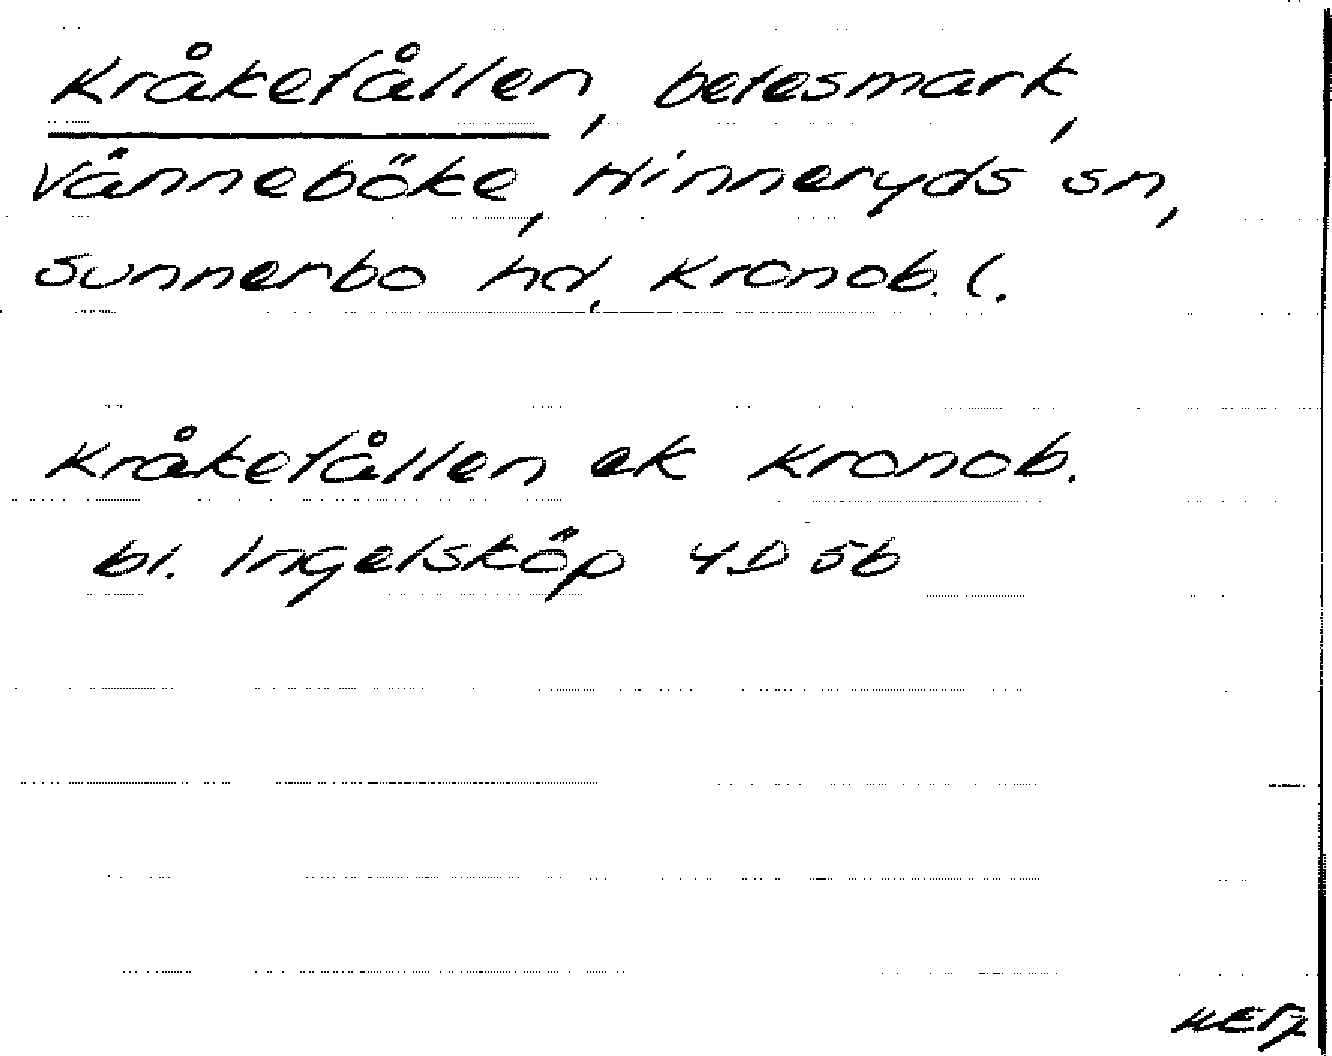 Kråkefållen, betesmark,
Vänneböke, Hinneryds sn,
Sunnerbo hd, Kronob. l.
Kråkefållen ek Kronob.
bl. Ingelsköp 4D 5b